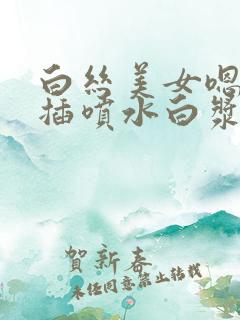 白丝美女嗯
插喷水白浆
賀新春
未经同意禁止转载